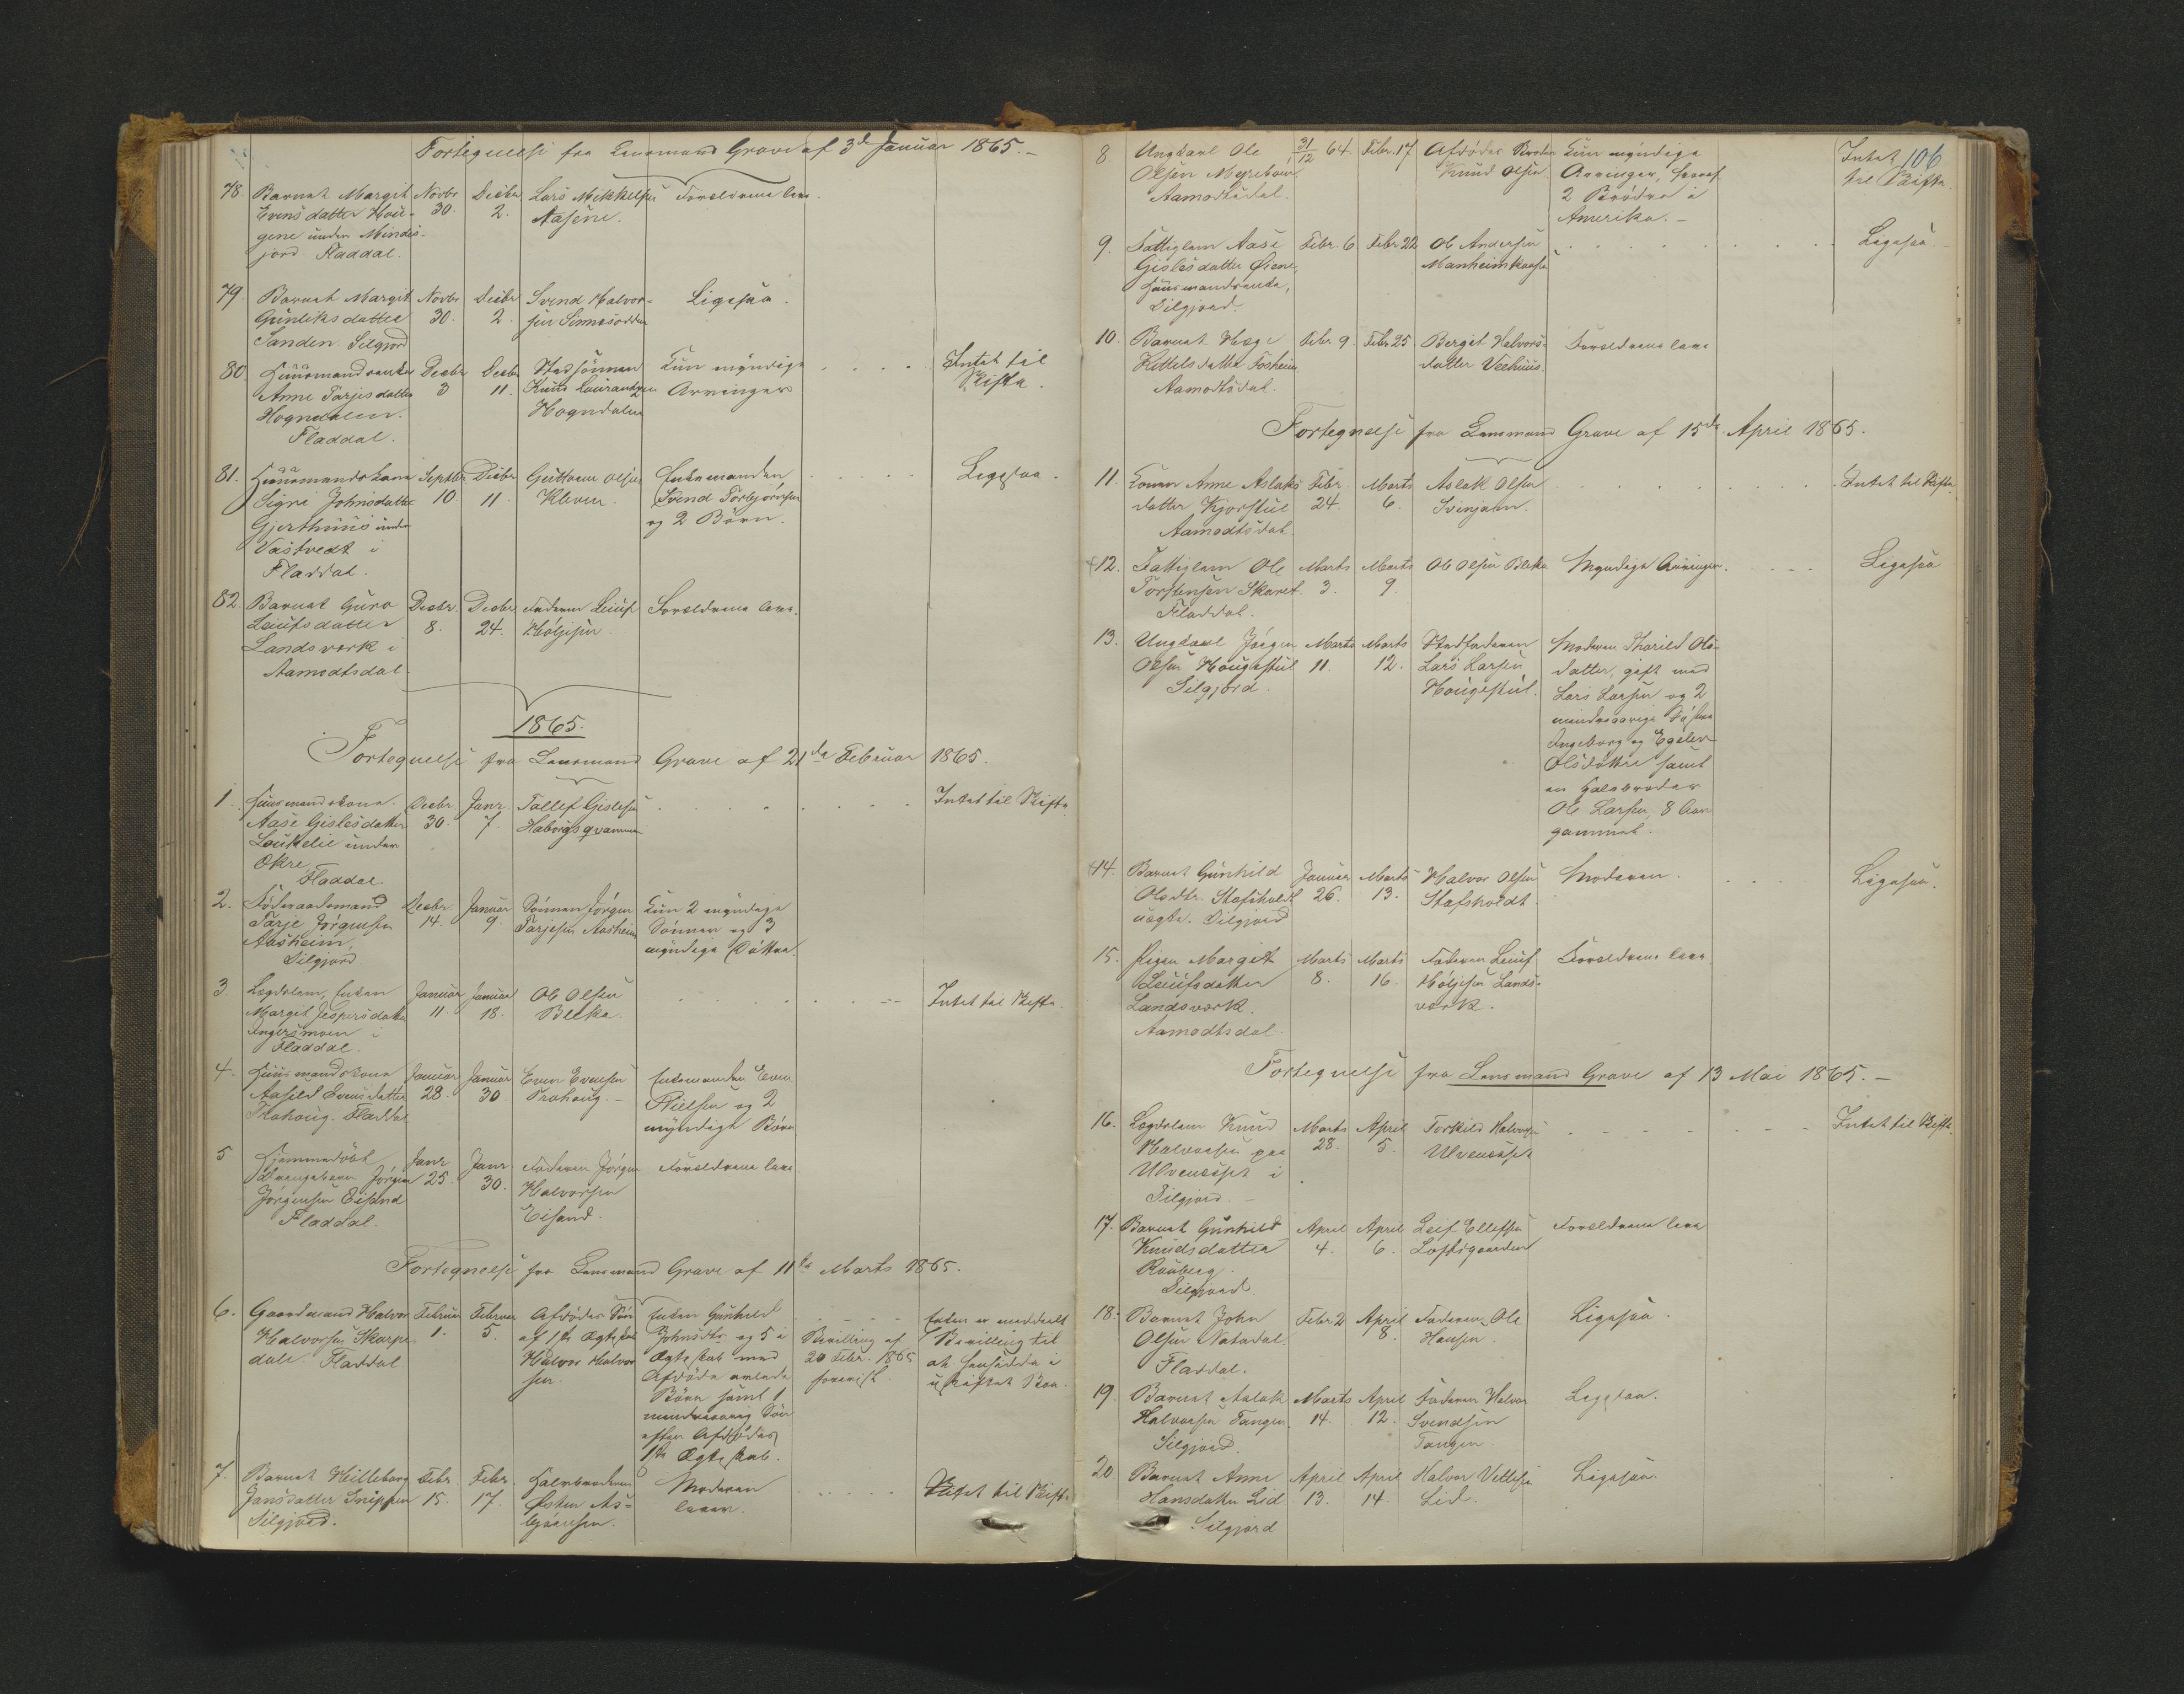 Fortegnelse fra Lensmand Grave af 3d Januar 1865.-
78. Barnet Margit Novbr Decbr Lars Mikkelsen Forældrene leve.
Evensdatter Hou- 30. 2. Aasene.
gene under Mindes-
jord Fladdal.
79. Barnet Margit Novbr Decbr Svend Halvor- Ligesaa.
Gunliksdatter 30. 2. sen Sinnesodden
Sanden Silgjord
80. Huusmandsenke Decbr Decbr Stedsønnen Kun myndige Intet til
Anne Tarjesdatter 3 11. Knud Laurantzen Arvinger Skifte.
Hogndalen. Hogndalen
Fladdal.
81. Huusmandskone Septbr Decbr Guttorm Olsen Enkemanden Ligesaa.
Sigri Johnsdatter 10 11. Kleven. Svend Torbjørnsen
Gjerthuus under og 2 Børn.
Vastvedt i
Fladdal.
82. Barnet Guro Decbr. Decbr. Faderen Leiuf Forældrene leve.
Leiufsdatter 8. 24. Høljesen
Landsverk i
Aamodtsdal.
1865.
Fortegnelse fra Lensmand Grave af 21de Februar 1865.
1. Huusmandskone Decbr. Janr. Tallef Gislesen Intet til Skifte.
Aase Gislesdatter 30. 7. Haborgsqvammen
Loukelie under
Økre,
Fladdal.
2. Føderaadsmand Decbr Januar Sønnen Jørgen Kun 2 myndige
Tarje Jørgensen 14. 9. Tarjesen Aasheim Sønner og 3
Aasheim myndige Døttre.
Silgjord
3. Lægdslem, Enken Januar Januar Ole Olsen Intet til Skifte.
Margit Jespersdatter 11. 18. Bleka.
Ingersmoen i
Fladdal.
4. Huusmandskone Januar Januar Even Evensen Enkemanden Even
Aasild Evensdatter 28. 30. Trohoug.- Nielsen og 2
Trohoug. Fladdal myndige Børn
5 Hjemmedøbt Janr Janr Faderen Jørgen Forældrene leve
Drengebarn Jørgen 25 30. Halvorsen
Jørgensen Eisand Eisand.
Fladdal.
Fortegnelse fra Lensmand Grave af 11te Marts 1865.
6. Gaardmand Halvor Februar Februar Afdødes Søn Enken Gunhild Enken er meddeelt
Halvorsen Skarpe- 1. 5. af 1ste Ægteskab Johnsdtr. og 5 i Bevilling af Bevilling til
dale. Fladdal Halvor Halvor- Ægteskab med 20 Febr. 1865 at hensidde i
sen. Afdøde avlede foreviist. uskiftet Boe.
Børn samt 1
mindreaarig Søn
efter Afdødes
1ste Ægteskab.
7. Barnet Hilleborg Febr. Febr. Halvbroderen Moderen Intet til Skifte
Jansdatter Snippen 15. 17. Østen As- lever.
Silgjord. bjørnsen.
106
8. Ungkarl Ole 31/12 64. Febr. 17 Afdødes Broder Kun myndige Intet
Olsen Myrebøen Knud Olsen Arvinger, hvoraf til Skifte.
Aamodtsdal. 2 Brødre i
Amerika.-
9. Fattiglem Aase Febr. 6 Febr 22 Ole Andersen Ligesaa.
Gislesdatter Øiene, Manheimkaasa
Huusmandsenke,
Silgjord.
10. Barnet Hæge Febr. 9. Febr. 25 Bergit Halvors- Forældrene leve
Kittelsdatter Fosheim datter Veehuus.
Aamodtsdal.
Fortegnelse fra Lensmand Grave af 15de April 1865.
11. Konen Anne Aslaks- Febr. Marts Aslak Olsen Intet til Skifte.
datter Kjorstul 24. 6. Svinjaan.
Aamodtsdal.
12. Fattiglem Ole Marts Marts Ole Olsen Bleka Myndige Arvinger. Ligesaa
Torstensen Skaret 3. 9.
Fladdal.
13. Ungkarl Jørgen Marts Marts Stedfaderen Moderen Thorild Ols-
Olsen Hougestul 11. 12. Lars Larsen datter, gift med
Silgjord. Hougestul. Lars Larsen og 2
mindreaarige Søstre
Ingeborg og Egelev
Olsdøttre samt
en Halvbroder
Ole Larsen, 8 Aar
gammel.
14. Barnet Gunhild Januar Marts Halvor Olsen Moderen. Ligesaa.
Olsdtr. Stafsholdt 26. 13. Stafsholdt.
uægte. Silgjord
15. Pigen Margit Marts Marts Faderen Leiuf Forældrene leve
Leiufsdatter 8. 16. Høljesen Lands-
Landsverk. verk.
Aamodtsdal.
Fortegnelse fra Lensmand Grave af 13 Mai 1865.-
16. Lægdslem Knud Marts April Torkild Halvorsen Intet til Skifte.
Halvorsen paa 28. 5. Ulveneset
Ulveneset i
Silgjord.-
17. Barnet Gunhild April April Leif Ellefsen Forældrene leve
Knudsdatter 4. 6. Loftsgaarden
Rauberg.
Silgjord
18. Barnet John Febr 2 April Faderen Ole Ligesaa.
Olsen Natadal. 8. Hansen.
Fladdal.
19. Barnet Aslak Marts April Faderen Halvor Ligesaa.
Halvorsen Tangen 14. 12. Svendsen
Silgjord. Tangen
20. Barnet Anne April April Halvor Vetlesen Ligesaa.
Hansdatter Lid 13. 14. Lid.
Silgjord